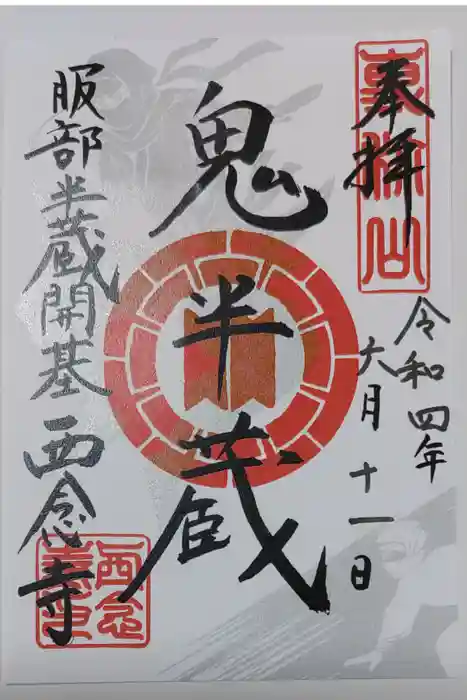 奉拝
令和四年
六月十一日
鬼半蔵
服部半蔵開基西念寺
西念